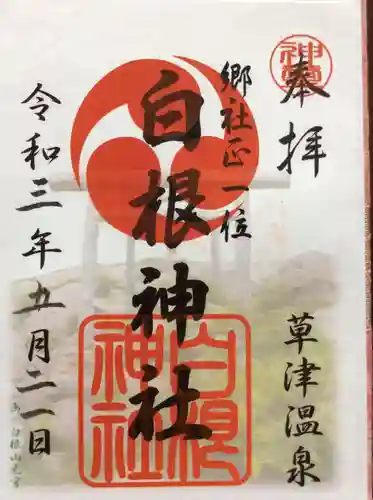 奉拝
神璽
草津温泉
郷社正一位
白根神社
白根神社
令和三年五月二一日